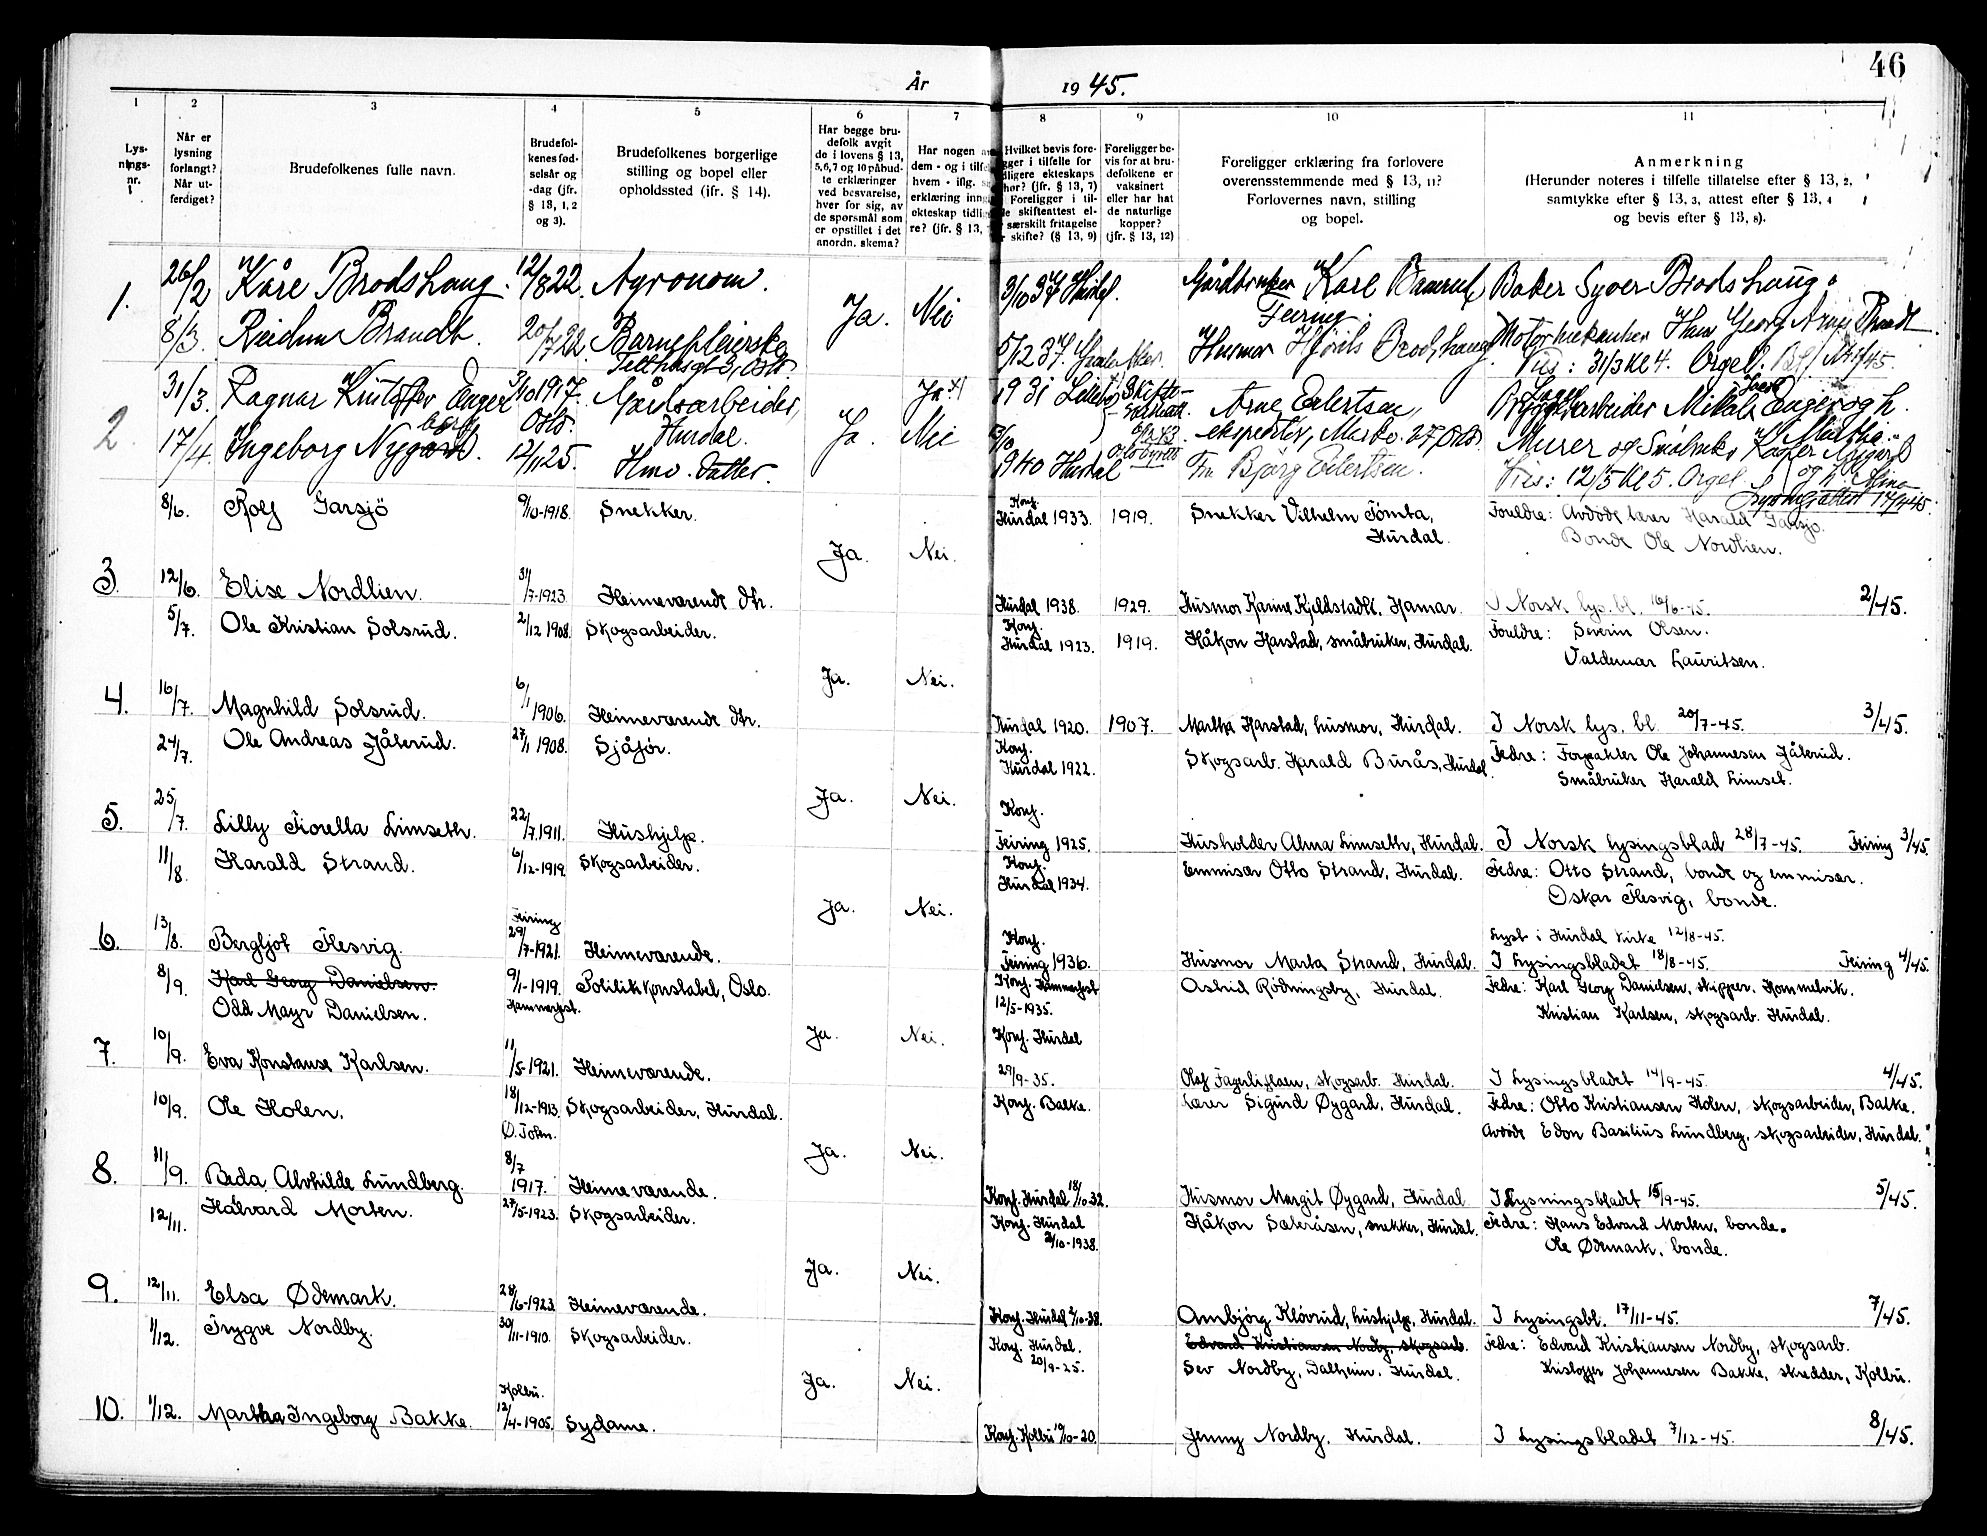 46
År 1945.
1 2 3 4 5 6 7 8 9 10 11
Lysnings-nr.
Når er lysning forlangt? Når utferdiget?
Brudefolkenes fulle navn.
Brudefolkenes fødselsår og -dag (jfr. § 13, 1, 2 og 3).
Brudefolkenes borgerlige stilling og bopel eller opholdssted (ifr. § 14).
Har begge brudefolk avgit de i lovens § 13, 5, 6, 7 og 10 påbudte erklæringer ved besvarelse, hver for sig, av de spørsmål som er opstillet i det anordn. skema?
Har nogen
dem - og i tilf
hvem - iflg.
erklæring inng
ekteskap tidli
re? (jfr. § 13,
Hvilket bevis fore-
gger i tilfelle for
dligere ekteskaps
hør? (jfr. § 13, 7)
Foreligger i til-
le skifteattest el-
særskilt fritagelse
skifte? (§ 13, 9)
Foreligger bevis for at brudefolkene er vaksinert eller har hat de naturlige kopper? (jfr. § 13, 12)
Foreligger erklæring fra forlovere overensstemmende med § 13, 11? Forlovernes navn, stilling og bopel.
Anmerkning
(Herunder noteres i tilfelle tillatelse efter § 13, 2, samtykke efter § 13, 3, attest efter § 13, 4 og bevis efter § 13, 8).
1. 26/2 Kåre Brodshaug. 12/8 22. Agronom. Ja. Nei 3/10 37 Gårdbruker Karl Baserud Baker Syver Brodshaug.
Feiring.
8/3. Reidun Brandt. 20/7 22 Barnepleierske 5/12 37. Husmor Hjørdis Brodshaug Motormekaniker Hans Georg Brandt
Telthusgt 3, Oslo Vies: 31/3 kl 4. Orgel.
2. 31/3. Ragnar Kristoffer Enger 3/10 1917. Gårdsarbeider, Ja. Ja x) 1931 Skifte- Arne Eilertsen, arbeider Mikal Enger og h.
Oslo. Hurdal. ekspeditør, Oslo
17/4. Ingeborg Nygård. 12/11 25. Hmv. datter. Nei 1940 Hurdal Fru Bjørg Eilertsen. Murer og
Vies: 12/5 kl 5. Orgel.
Lysningsattest 17/4 45.
8/6. Rolf Garsjö 9/10-1918. Snekker. Konf. Hurdal 1933. 1919. Snekker Vilhelm Tömta, Hurdal. Foreldre: Avdöde lærer Harald Garsjö.
Bonde Ole Nordlien.
Ja. Nei.
3. 12/6. Elise Nordlien. 31/7-1923. Heimeværende dtr. Hurdal 1938. 1929. Husmor Karine Kjeldstadli, Hamar. I Norsk lys. bl. 16/6-45. 2/45.
5/7. Ole Kristian Solsrud. 2/12 1908. Skogsarbeider. Konf. Hurdal 1923. 1919. Håkon Harstad, småbruker, Hurdal. Foreldre: Severin Olsen.
Valdemar Lauritsen.
Ja. Nei.
4. 16/7. Magnhild Solsrud. 6/1 1906. Heimeværende dtr. Hurdal 1920. 1907. Martha Harstad, husmor, Hurdal. I Norsk lys. bl 20/7-45. 3/45.
24/7. Ole Andreas Jålerud. 27/1 1908. Sjåför. Konf. Hurdal 1922. Skogsarb. Harald Burås, Hurdal. Fedre: Forpakter Ole Johannesen Jålerud.
Småbruker Harald Limset.
Ja. Nei.
5. 25/7. Lilly Fiorella Limseth. 22/7.1911. Hushjelp. Konf. Feiring 1925. Husholder Alma Limseth, Hurdal. I Norsk lysingsblad 28/7-45. Feiring 3/45.
11/8. Harald Strand. 6/12-1919. Skogsarbeider. Konf. Hurdal 1934. Emmisær Otto Strand, Hurdal. Fedre: Otto Strand, bonde og emmisær.
Oskar Flesvig, bonde.
Ja. Nei.
Lyst i Hurdal kirke 12/8-45.
6. 13/8. Bergljot Flesvig. Feiring 29/7-1921. Heimeværende. Konf. Feiring 1936. Husmor Marta Strand, Hurdal. I Lysingsbladet 18/8-45. Feiring 4/45.
8/9. Karl Georg Danielsen. 9/1-1919. Politikonstabel, Oslo. Konf. Hammerfest Astrid Rodningsby, Hurdal. Fedre: Karl Georg Danielsen, skipper, Hommelvik.
Odd Mayr Danielsen. Hammerfest. 12/5-1935. Kristian Karlsen, skogsarb. Hurdal.
Ja. Nei.
7. 10/9. Eva Konstanse Karlsen. 11/5-1921. Heimeværende. Konf. Hurdal 29/9-35. Olaf Fagerliflaen, skogsarb. Hurdal. I Lysingsbladet 14/9-45. 4/45.
10/9. Ole Holen. 18/12-1913. Skogsarbeider, Hurdal. Konf. Balke. Lærer Sigurd Øygard, Hurdal. Fedre: Otto Kristiansen Holen, skogsarbeider, Balke.
Ø. Toten. Avdöde Edon Basilius Lundberg, skogsarbeider, Hurdal.
Ja. Nei.
8. 11/9. Beda Alvhilde Lundberg. 8/7 1917. Heimeværende. Konf. Hurdal 18/10-32. Husmor Margit Øygard, Hurdal I Lysningsbladet 15/9-45. 5/45.
12/11. Halvard Morten. 27/5-1923. Skogsarbeider. Konf. Hurdal 2/10-1938. Håkon Sæteråsen, snekker, Hurdal. Fedre: Hans Edvard Morten, bonde.
Ole Ødemark, bonde.
Ja. Nei.
9. 12/11. Elsa Ødemark. 28/6-1923. Heimeværende. Konf. Hurdal 2/10-38. Ambjörg Klövrud, hushjelp, Hurdal. I Lysingsbl. 17/11-45. 7/45.
1/12. Trygve Nordby. 30/11-1910. Skogsarbeider. Konf. Hurdal. 20/9-25. Edvard Kristiansen Nordby, skogsarb. Fedre: Edvard Kristiansen Nordby, skogsarb.
Sev Nordby, Dalheim, Hurdal. Kristoffer Johannesen Bakke, skredder, Kolbu.
Ja. Nei.
10. 1/12. Martha Ingeborg Bakke. Kolbu. 12/4-1905. Sydame. Konf. Kolbu 10/10-20. Jenny Nordby, Hurdal. I Lysingsbladet 7/12-45. 8/45.